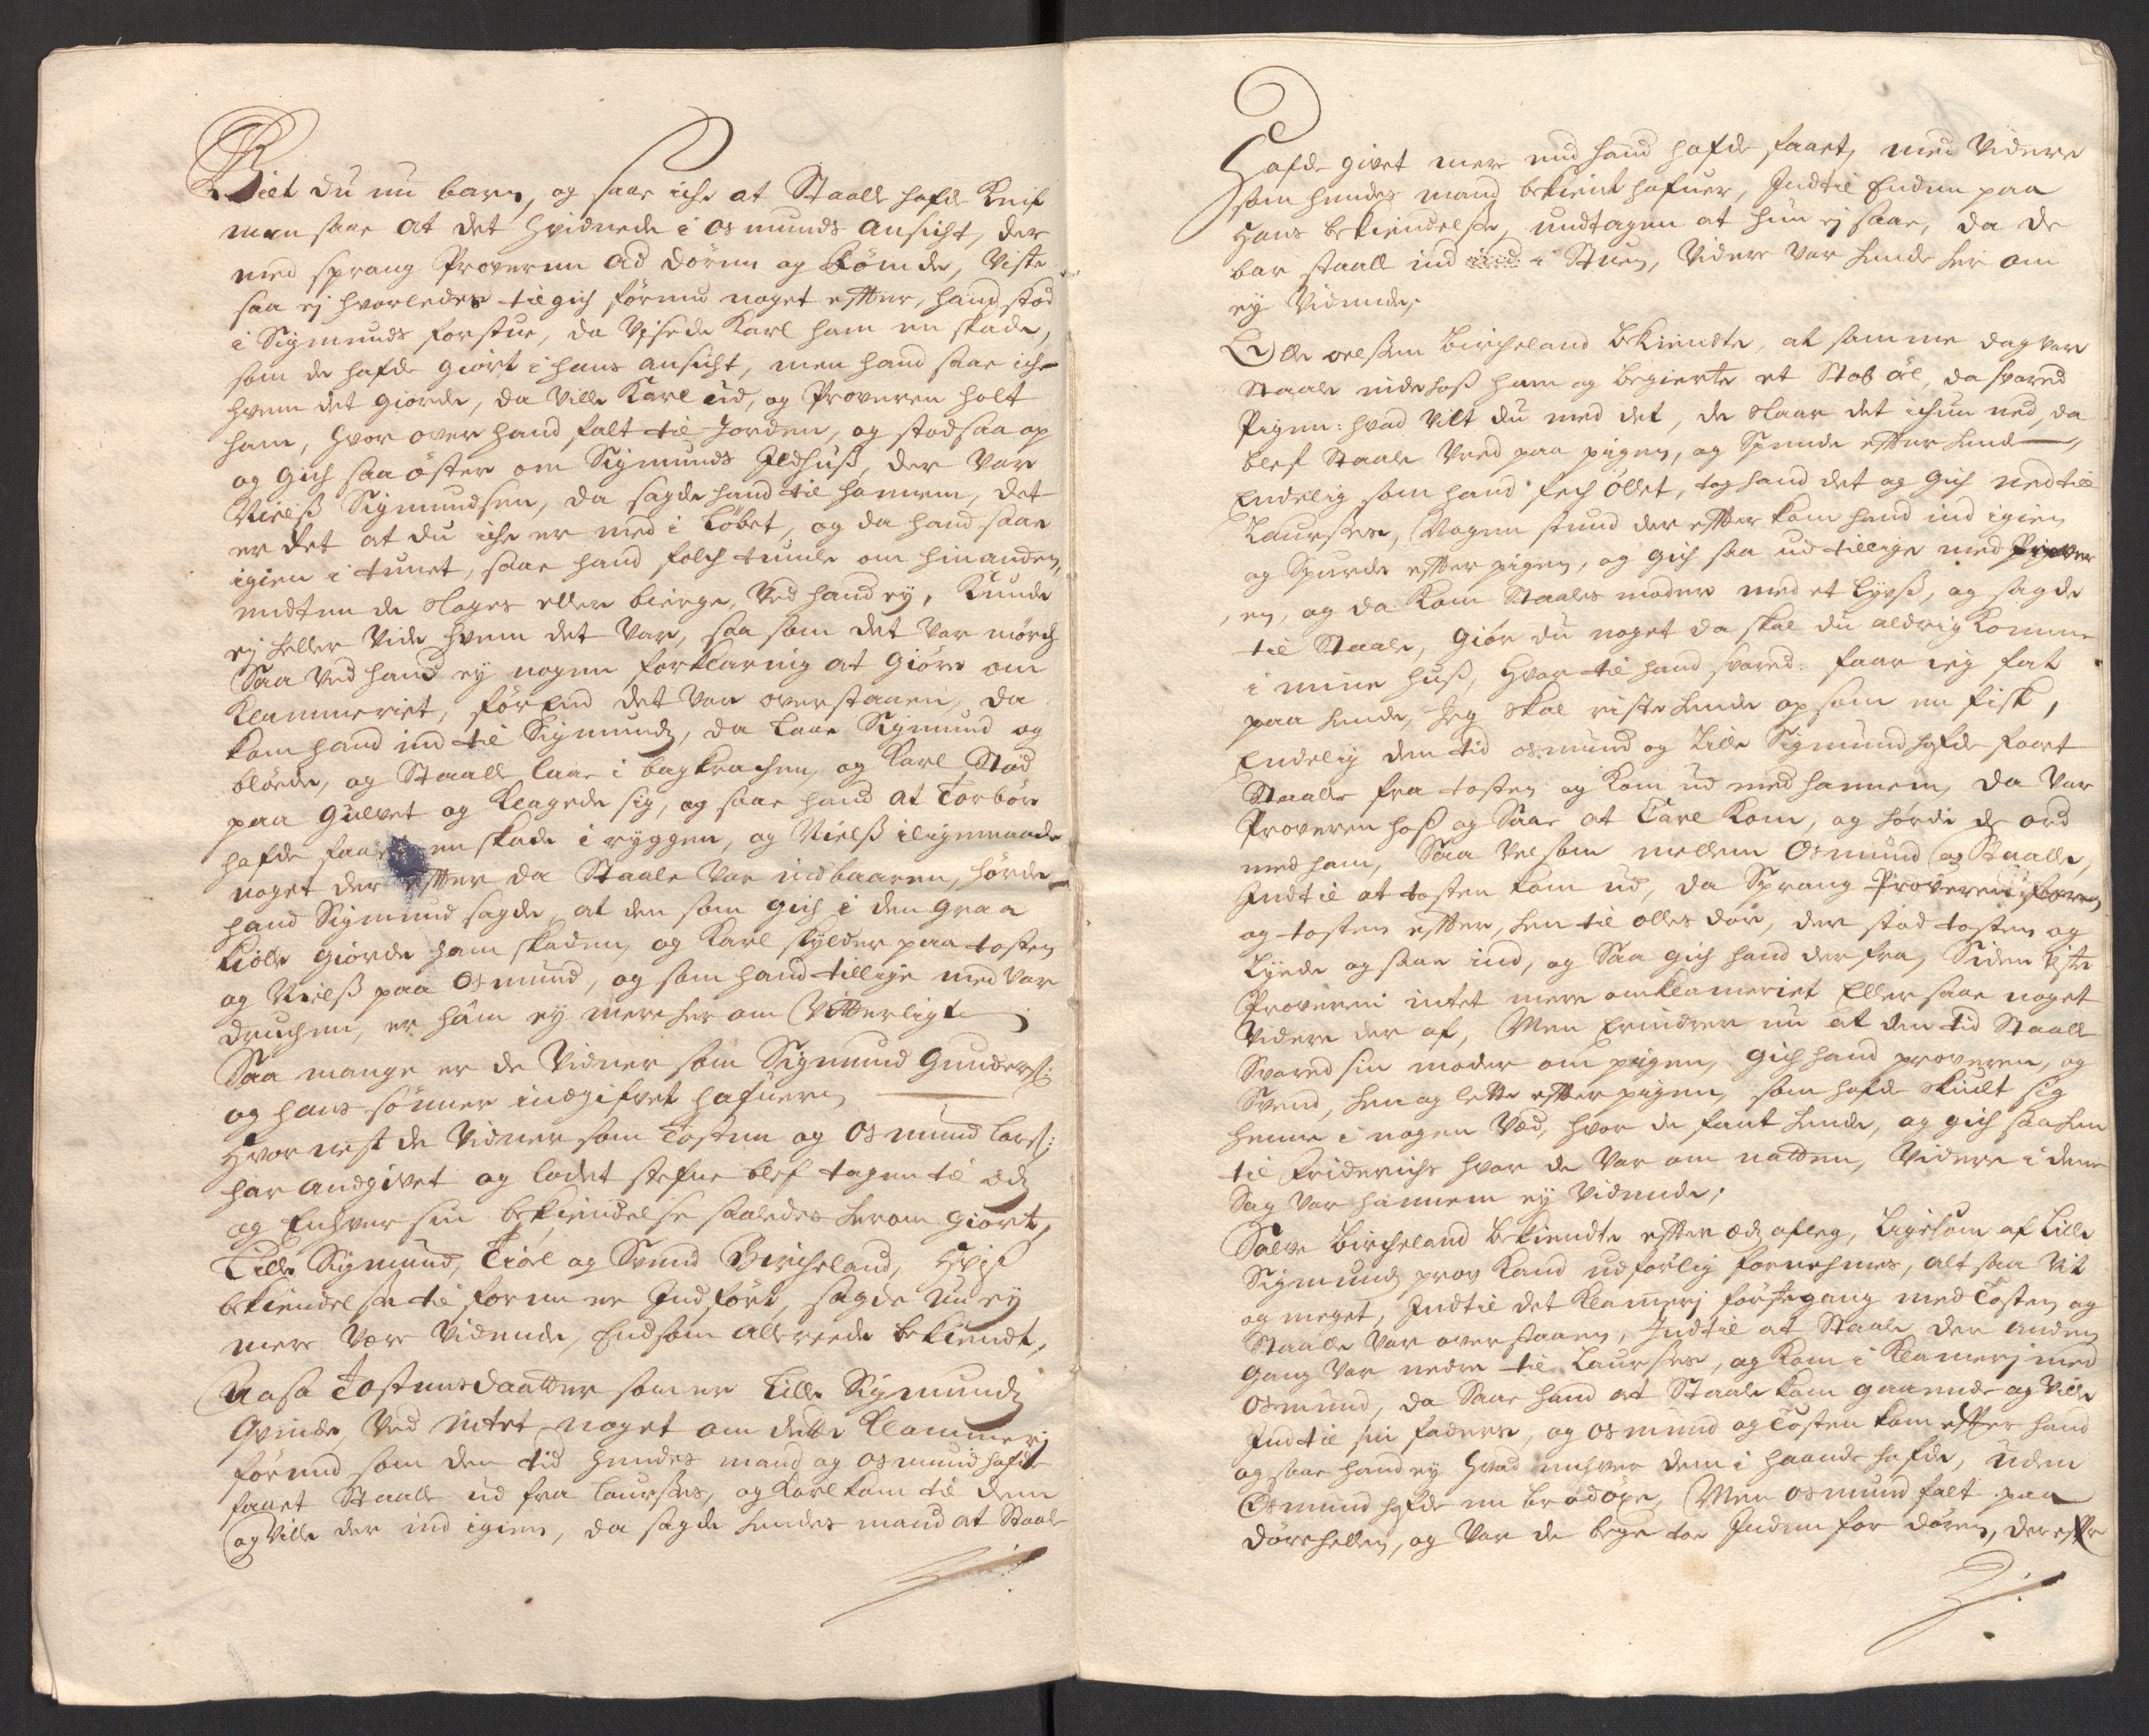 Bilt du nu barn, og saae iche at Staall hafde Knif
men saae at det hvidnede i osmunds Ansicht, der
med sprang Proveren ad dören og Römde, viste
saa ej hvorledes tilgich förend noget effter, hand stod
i Sigmunds forstue, da viiste Karl ham en skade,
som de hafde giort i hans ansicht, men hand saae iche
hvem det giorde, da ville Karl ud, og Proveren holt
ham, hvor over hand falt til Jorden, og stod saa op
og gich saa öster om Sigmunds Ildhuß, der var
Nielß Sigmundsen, da sagde hand til hannem, det
er det at du iche er med i Löbet, og da hand saae
igien i tunet, saae hand folch tumle om hinanden,
endten de Sloges eller bierge, ved hand ey, Kunde
ej heller vide hvem det var, saa som det var mörch
Saa ved hand ey nogen forklaring at giöre om
Klammeriet, för end det var overstaaen, da
kom hand ind til Sigmunds, da laae Sigmund og
blöede, og Staall laae i bagkrachen, og Karl stod
paa gulvet og klagede sig, og saae hand at Torbör
hafde faaet en skade i ryggen, og Nielß iligemaade
noget der effter da Staale var indbaaren, hörde
hand Sigmund sagde, at den som gich i den graa
kiole giorde ham skaden, og Karl skylder paa tosten
og Nielß paa Osmund, og som hand tillige med var
druchen, er ham ey mere her om Vitterligt
Saa mange er de Vidner som Sigmund Gunderß:
og hans sönner indgifvet hafuer,
Hvor nest de Vidner som Tosten og Osmund Larß:
har Andgivet og ladet stefne blef tagen til Eds
og Enhver sin bekiendelse saaledes herom giort,
Lille Sigmund, Tiöl og Svend Bircheland, hviß
bekiendelse til forne er Indfört, sagde nu ey
mere Være Vidende, End som allereede bekiendt,
Aasa Tostensdaatter som er Lille Sigmunds
Qvinde, Ved intet noget om dette Klammerj
förend som den tid hendes mand og osmund hafde
faaet Staall ud fra Laurses, og Karl kom til dem
og Ville der ind igien, da sagde hendes mand at Staal
Hafde givet mere end hand hafde faaet, med Videre
som hendes mand bekient hafuer, Indtil Enden paa
hans bekiendelse, undtagen at hun ej saae, da de
bar staall ind i Stuen, Videre var hende her om
ey Vidende,
Olle oelßen Bircheland bekiendte, at samme dag var
Staale inde hoß ham og begierte et Stob öl, da svared
Pigen: hvad vilt du med det, du slaar det ichun ned, da
blef Staale vred paa pigen, og Spende effter hende,
Endelig som hand fech öllet, tog hand det og gich ned til
Laurses, Nogen stund der effter kom hand ind igien
og Spurde effter pigen, og gich saa ud tillige med Prover
en, og da kom Staales moder med et Lyuß, og sagde
til Staale, giör du noget da skal du aldrig komme
i mine huß, hvor til hand svared: faar ieg fat
paa hende, jeg skal riste hende op som en fisk,
Endelig den tid osmund og Lille Sigmund hafde faaet
Staalle fra tosten og kom ud med hannem, da var
Proveren hoß og saae at Karl kom, og hörde de ord
med ham, Saa vel som mellem Osmund og Staalle,
Indtil at tosten kom ud, da Sprang Proveren foran
og tosten effter, hen til olles dör, der stod tosten og
Lyede og saae ind, og saa gich hand derfra, Siden Viste
Proveren intet mere om klameriet Eller saae noget
Videre der af, Men Erindrer nu at den tid Staall
Svared sin moder om pigen, gich hand proveren, og
Svend, hen og lette effter pigen, som hafde skiult sig
henne i nogen Ved, hvor de fant hende, og gich saa hen
til Friderichs hvor de var om natten, Videre i denne
Sag var hannem ey Vidende;
Salve Bircheland bekiendte effter Eds afleg, Ligesom af Lille
Sigmunds prov kand udförlig fornehmes, alt saa vit
og meget, Indtil det klamerj förstegang med Tosten og
Staalle var overstaaen, Indtil at Staale den anden
gang var nedre til Laurses, og kom i klamerj med
osmund, da Saae hand at Staale kom gaaende og Ville
Ind til sin faders, og osmund og Tosten kom effter hand
og saae hand ey hvad enhver dem i haande hafde, uden
Osmund hafde en brödöxe, Men osmund falt paa
dörehellen, og var de bege toe Inden for dören, der effter